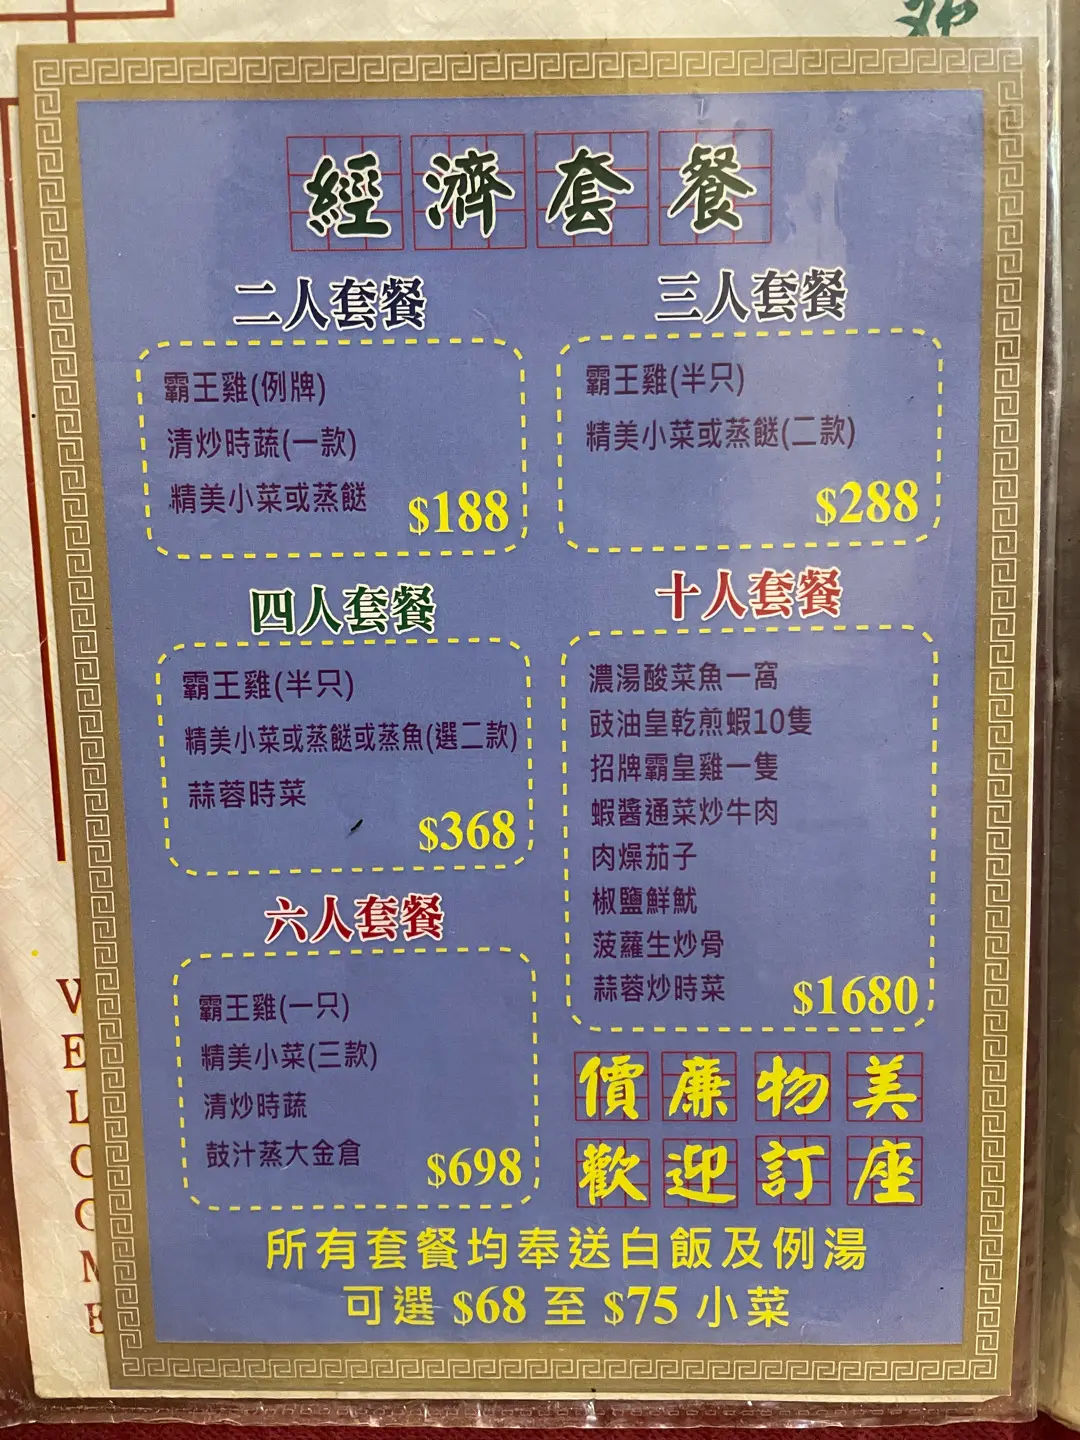 經濟套餐
二人套餐
霸王雞(例牌)
清炒時蔬(一款)
精美小菜或蒸餸
$188
三人套餐
霸王雞(半只)
精美小菜或蒸餸(二款)
$288
四人套餐
霸王雞(半只)
精美小菜或蒸餸或蒸魚(選二款)
蒜蓉時菜
$368
十人套餐
濃湯酸菜魚一窩
豉油皇乾煎蝦10隻
招牌霸皇雞一隻
蝦醬通菜炒牛肉
肉燥茄子
椒鹽鮮魷
菠蘿生炒骨
蒜蓉炒時菜
$1680
六人套餐
霸王雞(一只)
精美小菜(三款)
清炒時蔬
鼓汁蒸大金倉
$698
價廉物美
歡迎訂座
所有套餐均奉送白飯及例湯
可選 $68 至 $75 小菜